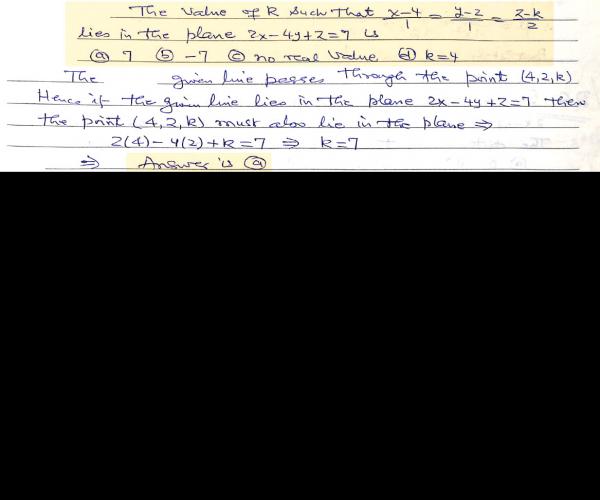 The value of k such that x-4/1 = y-2/1 = z-k/2
lies in the plane 2x-4y+z=7 is
(a) 7 (b) -7 (c) no real value (d) k=4
The given line passes through the point (4,2,k)
Hence if the given line lies in the plane 2x-4y+z=7 then
the point (4,2,k) must also lie in the plane ⇒
2(4)-4(2)+k=7 ⇒ k=7
⇒ Answer is (a)